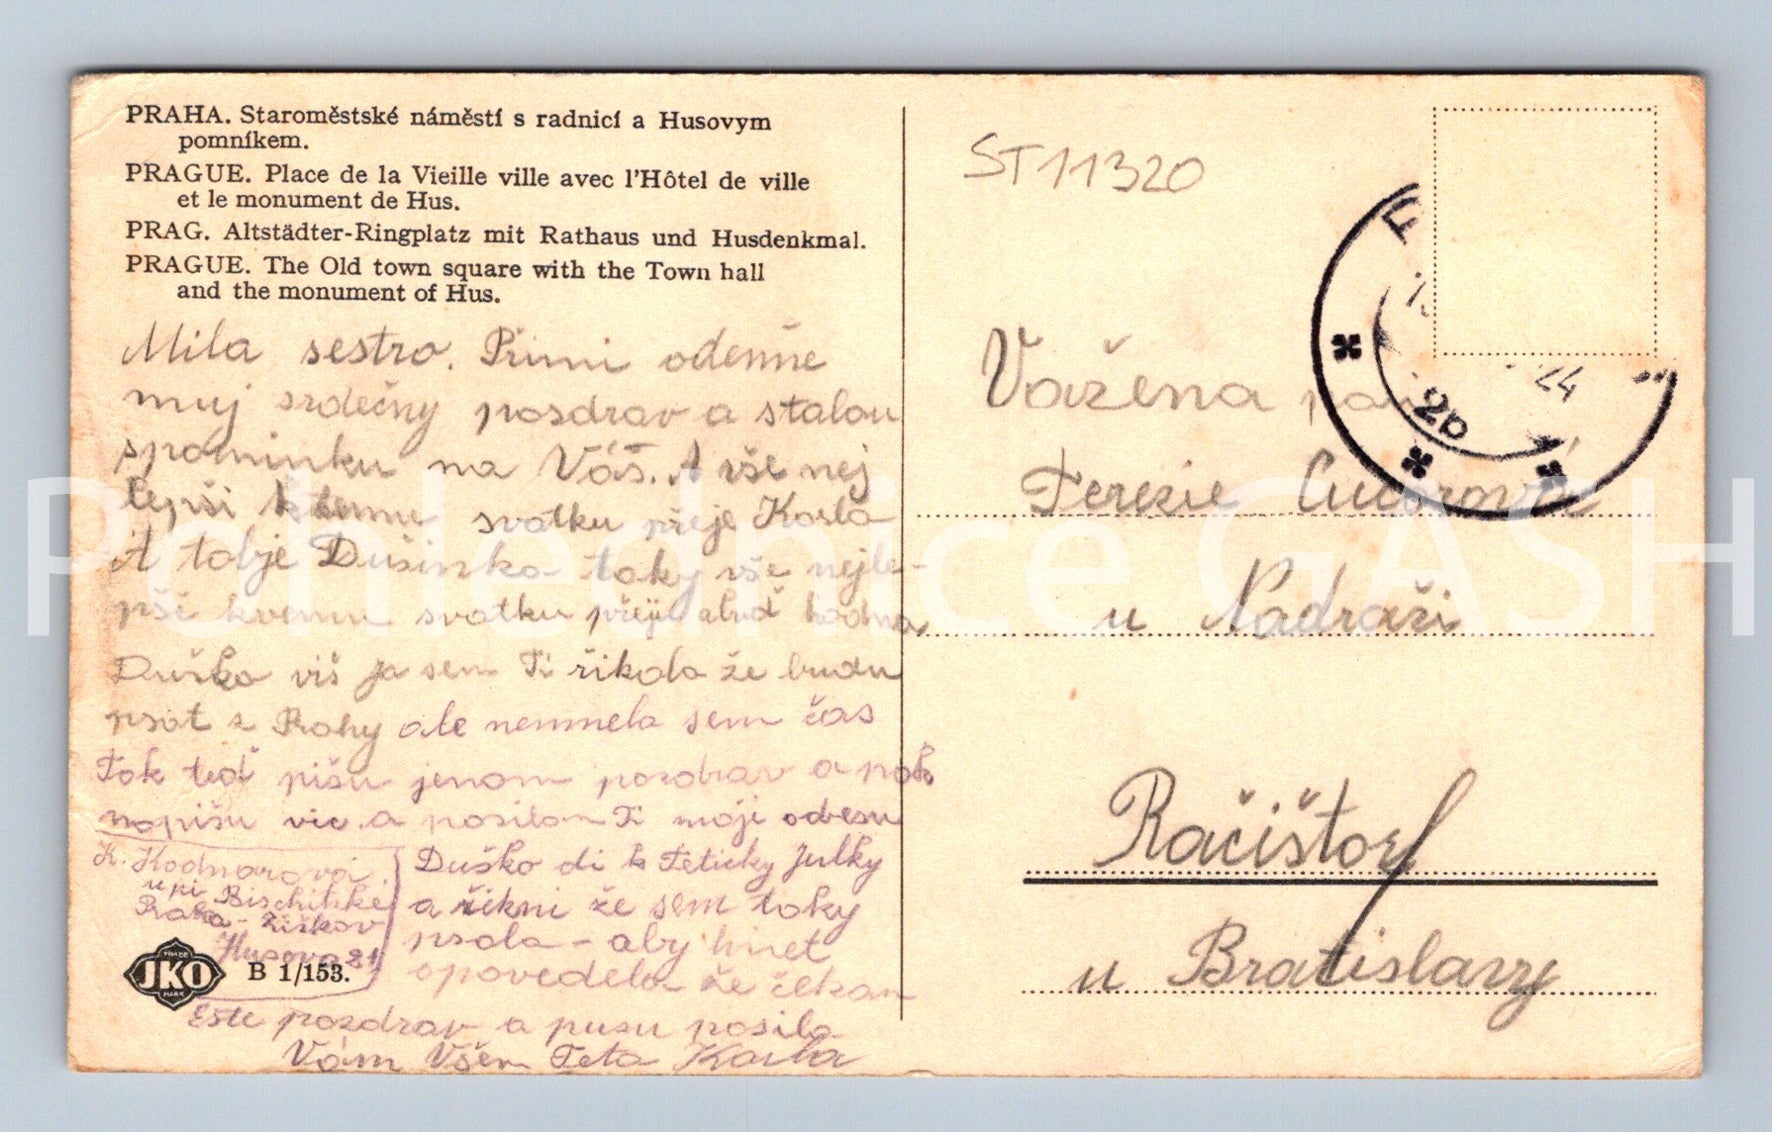 PRAHA. Staroměstské náměstí s radnicí a Husovym
pomníkem.
PRAGUE. Place de la Vieille ville avec l'Hôtel de ville
et le monument de Hus.
PRAG. Altstädter-Ringplatz mit Rathaus und Husdenkmal.
PRAGUE. The Old town square with the Town hall
and the monument of Hus.
Mila sestro. Primi odemne
muj srdečny pozdrav a stalou
spominku na Váš. A vše nej
lepši k temu svatku přeje Karla
A tobje Dušinko taky vše nejle-
pše kvemu svatku přeji abuď hodna
Duško viš ja sem Ti řikala že budu
psat z Prahy ale nemnela sem čas
Tak teď pišu jenom pozdrav a pak
napišu vic a posilam Ti moji adresu
Duško di k Teticky Julky
a řikni že sem taky
psala - aby hnet
opovedela že čekam
Este pozdrav a pusu posila
Vám Všem Teta Karla
K. Hodnarová
u pi
Praha - Žižkov
Husova 21
JKO
B 1/153.
ST11320
24
2b
Važena pani
Terezie
u Nadraži
Račištorf
u Bratislavy
Pohlednice GASH